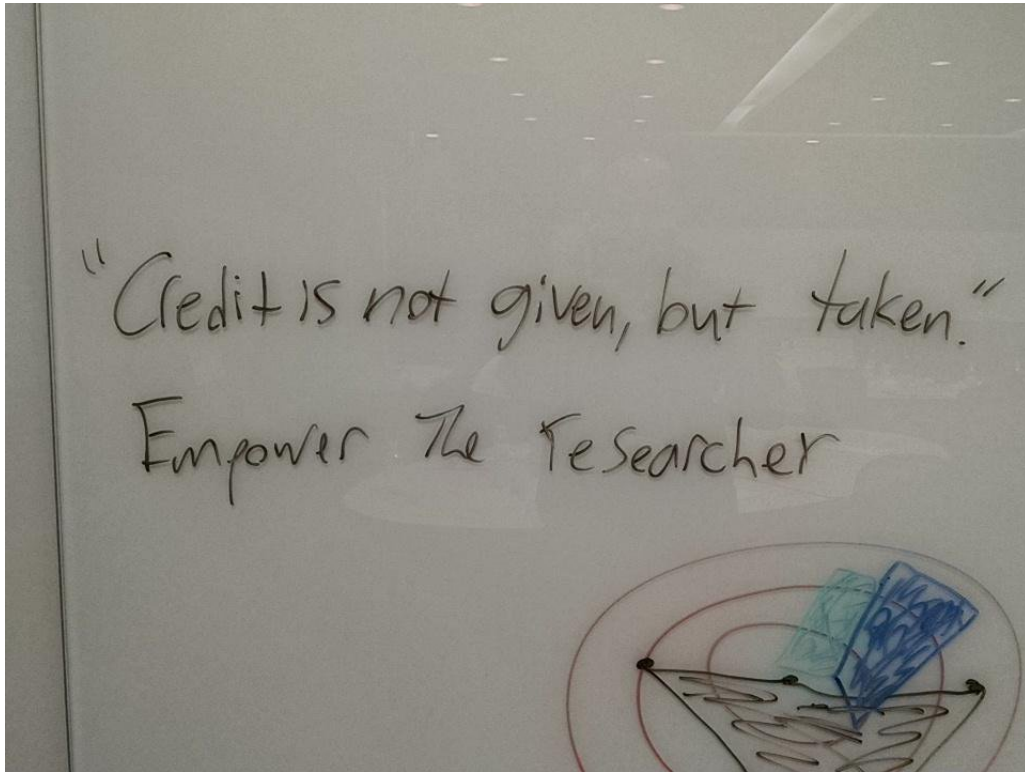 "Credit is not given, but taken."
Empower The researcher